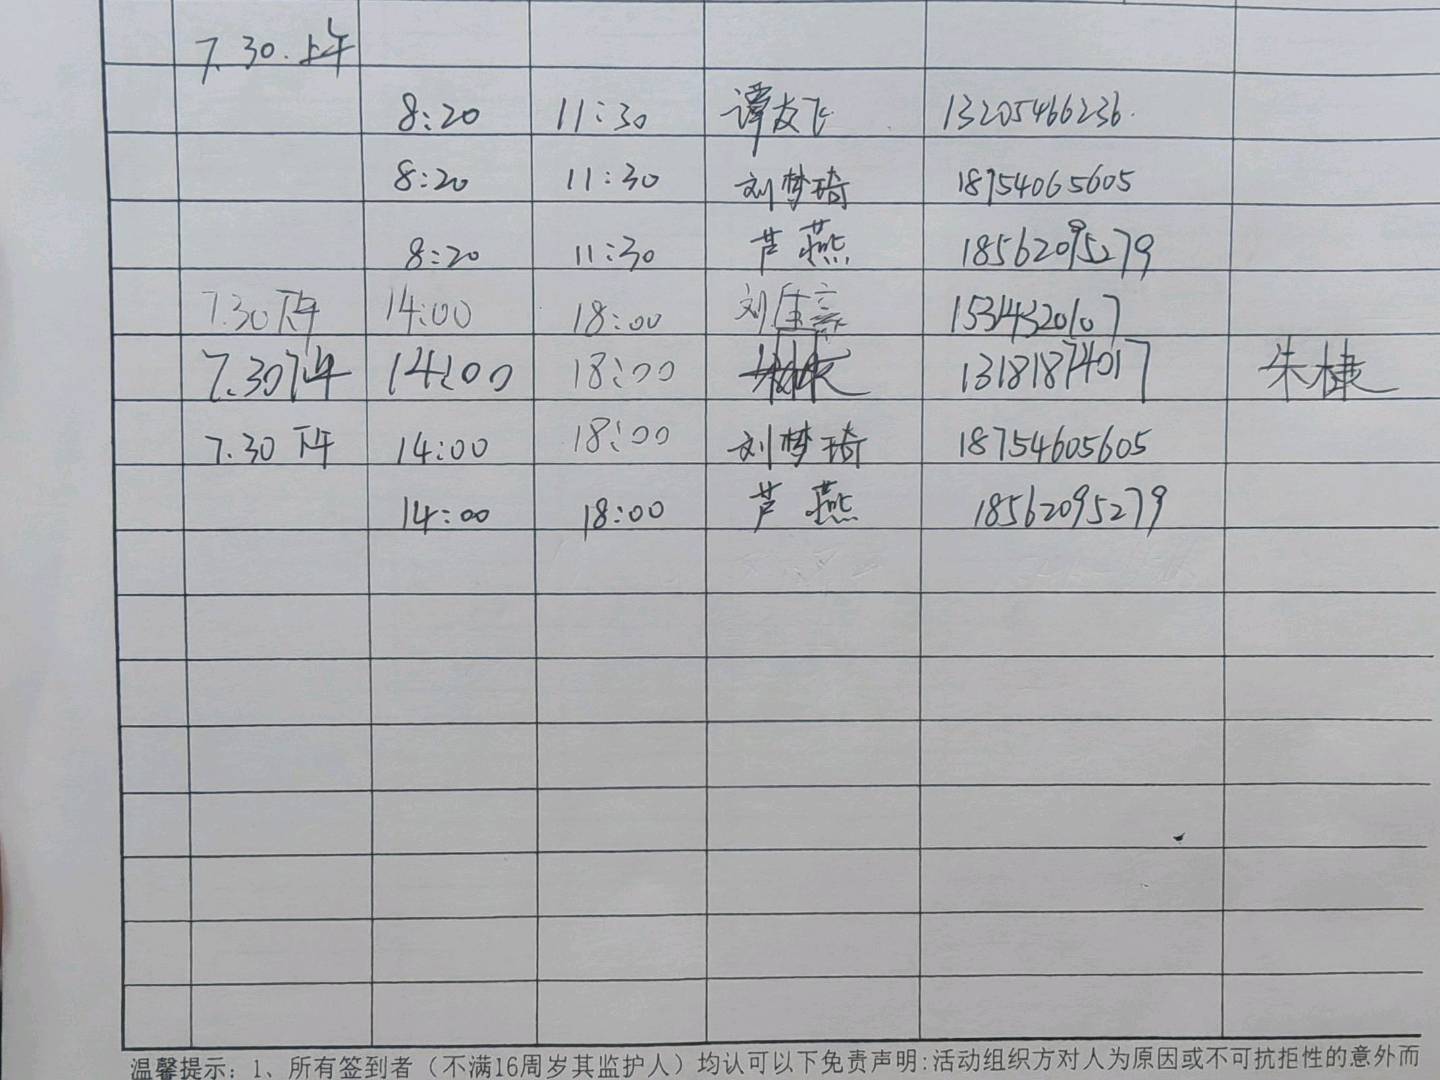 7.30.上午
8:20 11:30 谭友飞 13205466236.
8:20 11:30 刘梦琦 18754065605
8:20 11:30 芦燕 18562095279
7.30下午 14:00 18:00 刘 15314320107
7.30下午 14:00 18:00 13181874017 朱棣
7.30下午 14:00 18:00 刘梦琦 18754605605
14:00 18:00 芦燕 18562095279
温馨提示: 1、所有签到者（不满16周岁其监护人）均认可以下免责声明:活动组织方对人为原因或不可抗拒性的意外而